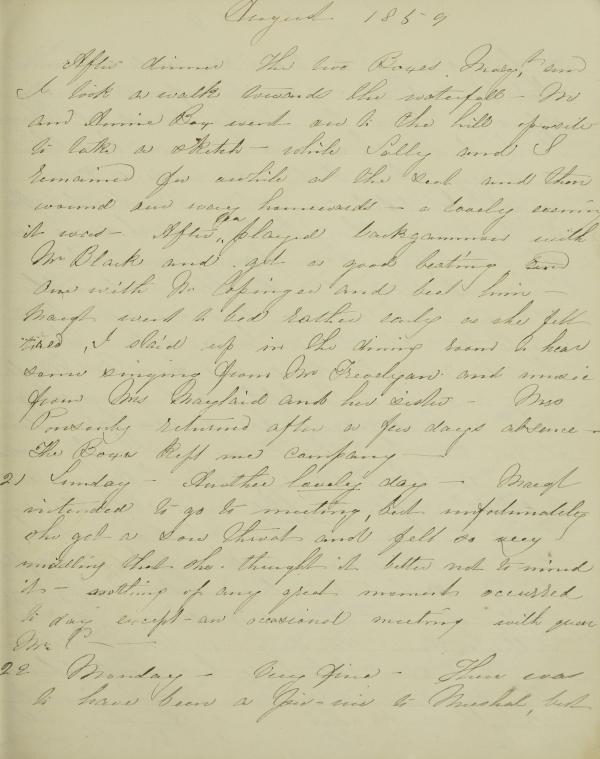 August 1859
After dinner the two Boxes, Margt, and
I took a walk towards the waterfall - Mr
and Annie Box went on to the hill oposite
to take a sketch - while Sally and I
remained for awhile at the seat and then
wound our way homewards - a lovely evening
it was - After tea played backgammon with
Mr Black and get a good beating and
one with Dr Copinger and beat him -
Margt went to bed rather early as she felt
tired, I staid up in the dining room to hear
some singing from Mr Trevelyan and music
from Mrs and her sister - Mrs
Ponsonby returned after a few days absence -
The Boxes kept me company -
21 Sunday - Another lovely day - Margt
intended to go to meeting, but unfortunately
she got a sore throat and felt so very
unwilling that she thought it better not to mind
it - nothing of any great moment occurred
to day except an occasional meeting with queer
Mr P -
22 Monday - Very fine - There was
to have been a pic-nic to , but